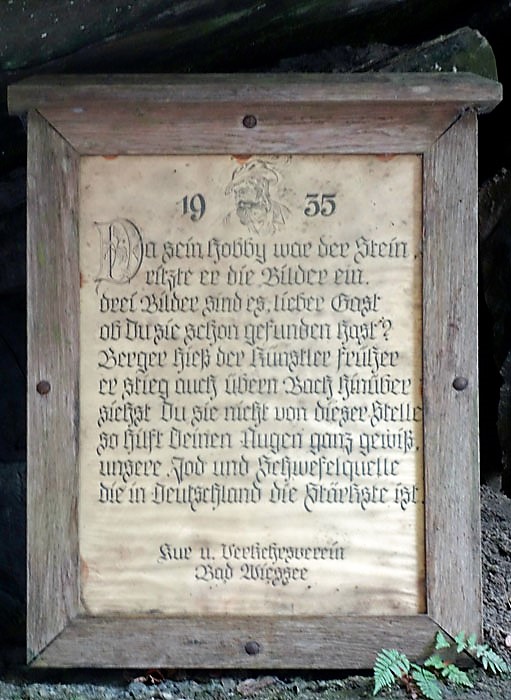 19 35
Da sein Hobby war der Stein
ritzte er die Bilder ein.
drei Bilder sind es, lieber Gast
ob Du sie schon gefunden hast?
Berger hieß der Künstler früher
er stieg auch übern Bach hinüber
siehst Du sie nicht von dieser Stelle
so hilft Deinen Augen ganz gewiß,
unsere Jod und Schwefelquelle
die in Deutschland die Stärkste ist.
Kur u. Verkehrsverein
Bad Wiessee